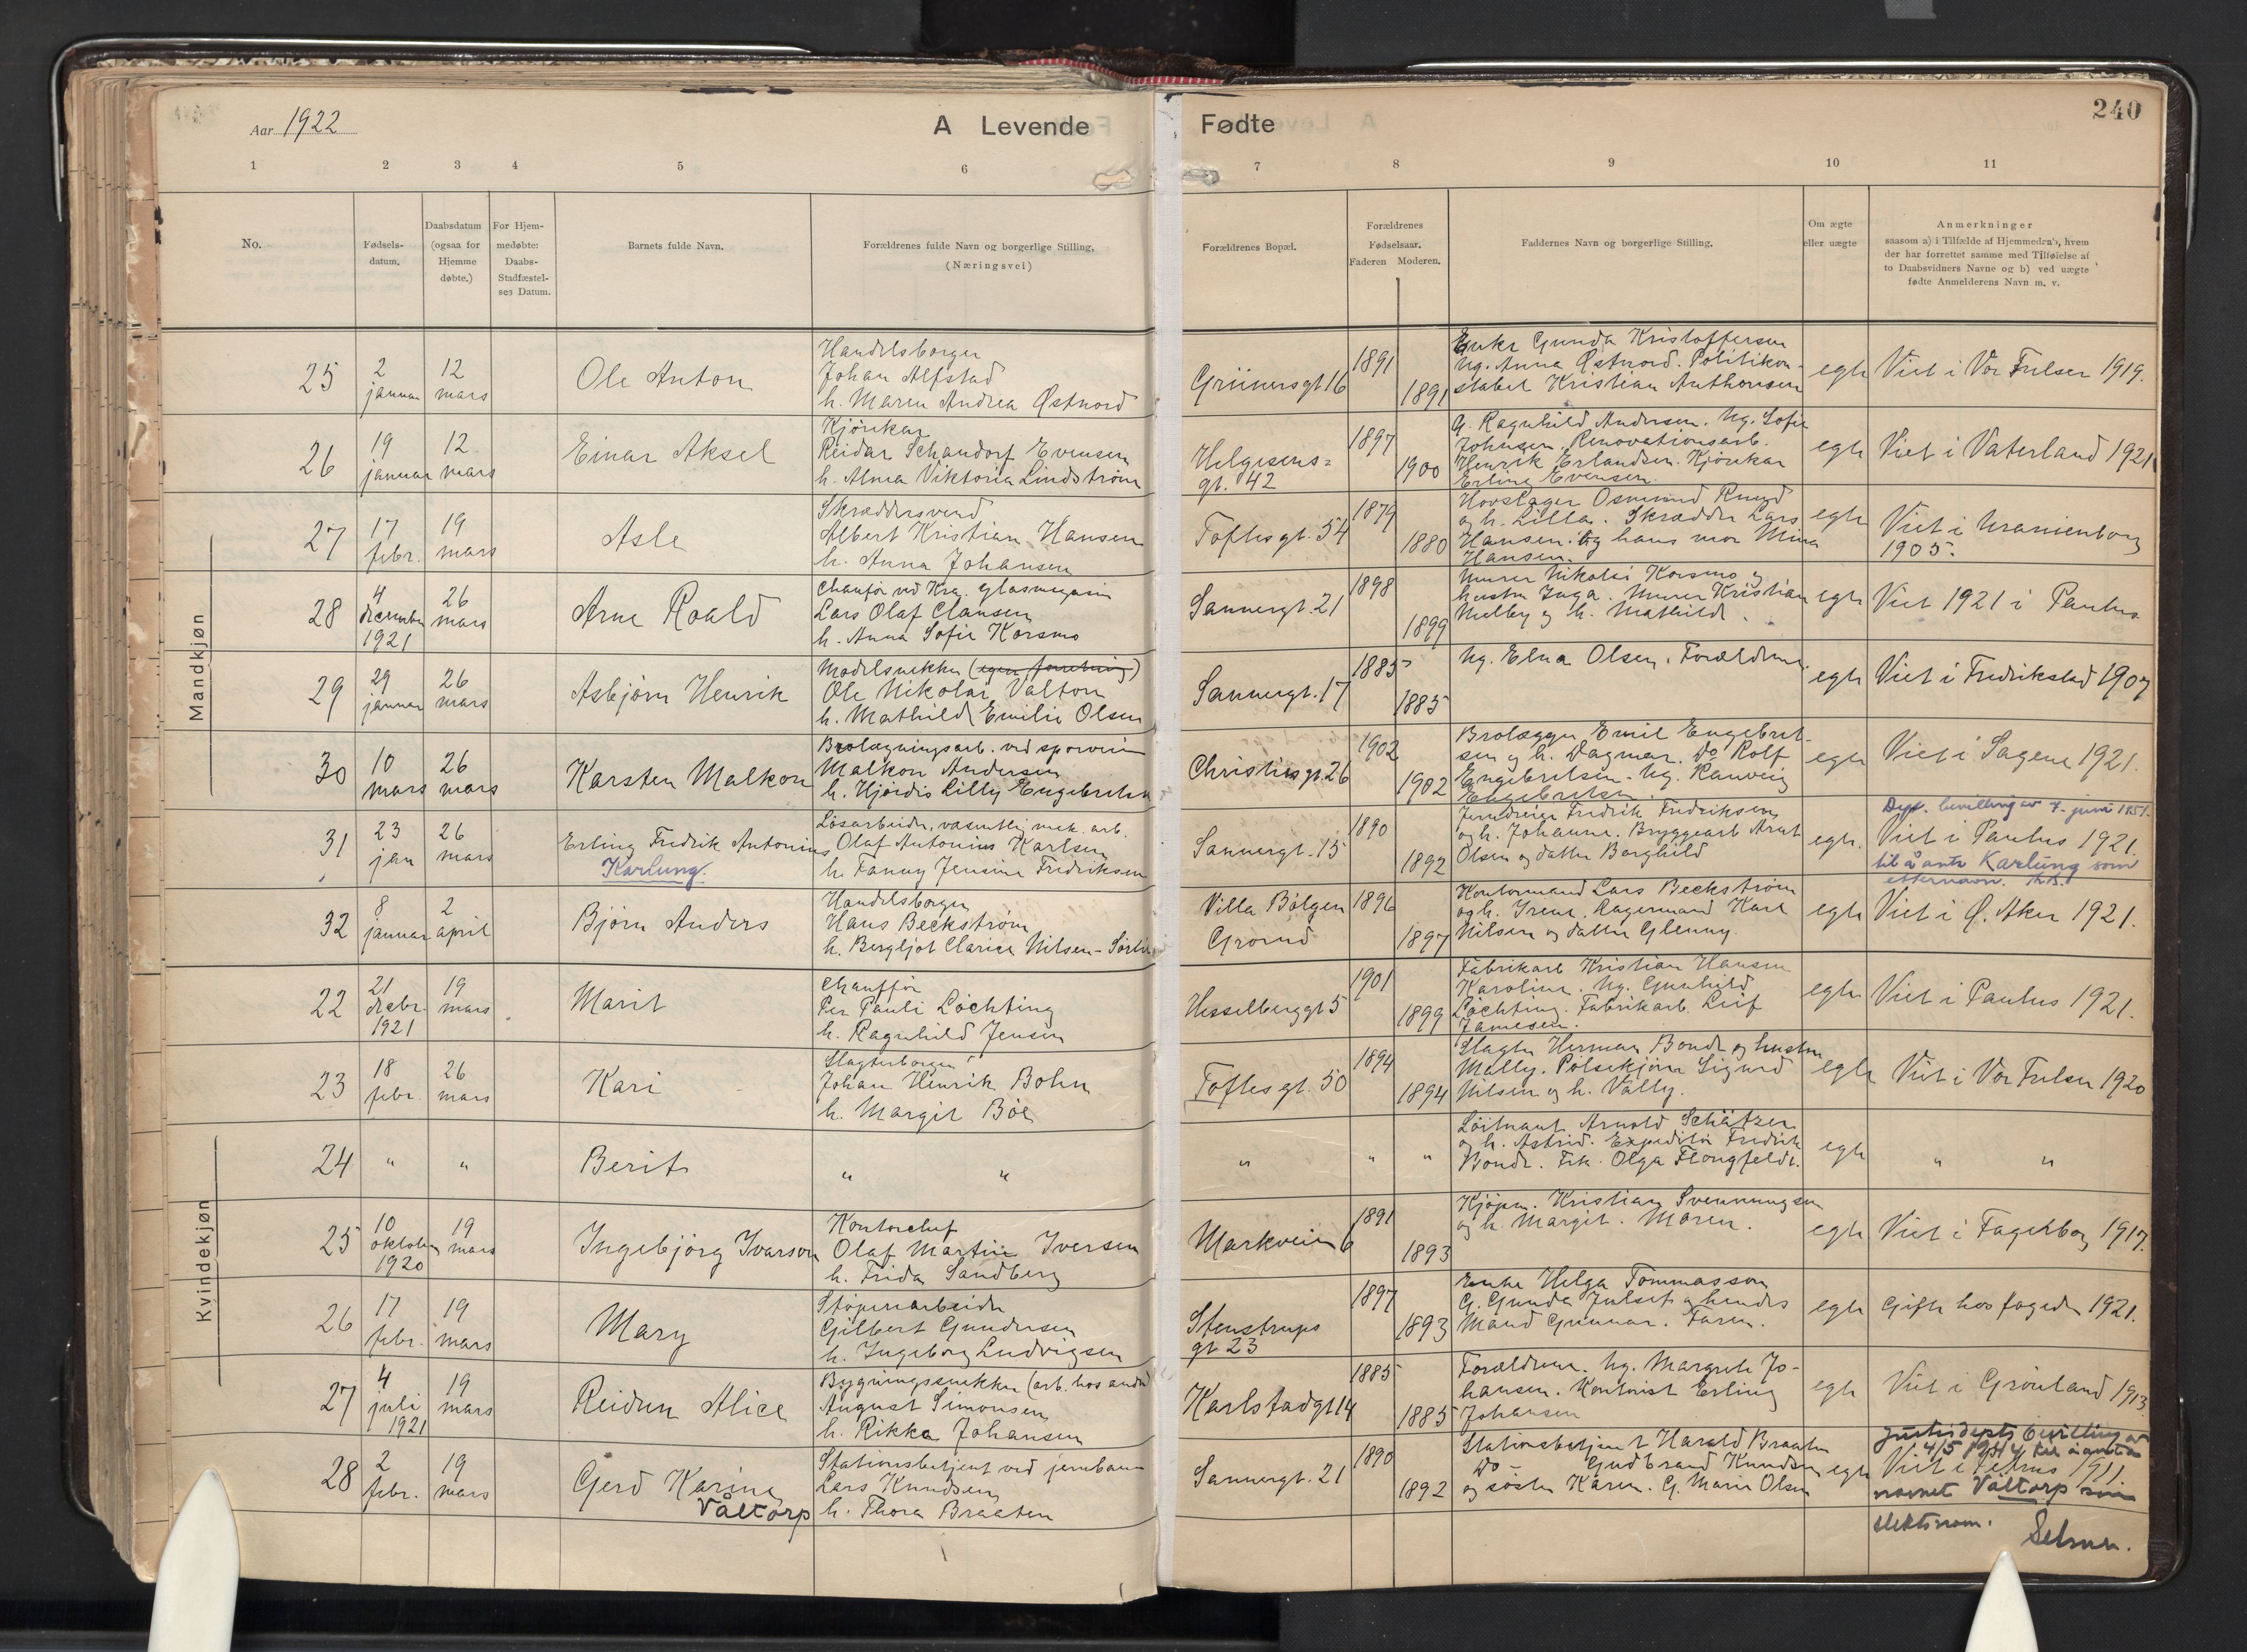 Aar 1922
A Levende
Fødte
240
1
2
3
4
5
6
7
8
9
10
11
No.
Fødsels-
datum.
Daabsdatum
(ogsaa for
Hjemme
døbte.)
For Hjem-
medøbte:
Daabs-
Stadfæstel-
ses Datum.
Barnets fulde Navn.
Forældrenes fulde Navn og borgerlige Stilling,
(Næringsvei)
Forældrenes Bopæl.
Forældrenes
Fødselsaar.
Faderen Moderen.
Faddernes Navn og borgerlige Stilling.
Om ægte
eller uægte
Anmerkninger
saasom a) i Tilfælde af Hjemmedaab, hvem
der har forrettet samme med Tilføielse af
to Daabsvidners Navne og b) ved uægte
fødte Anmelderens Navn m. v.
Mandkjøn
25
2
januar
12
mars
Ole Anton
Handelsborger
Johan Alfstad
h. Maren Andrea Østnord
Grünersgt 16
1891
1891
Enke Gunda Kristoffersen
Ug. Anna Østnord. Politikon-
stabel Kristian Anthonisen
egte
Viet i Vor Frelser 1919.
26
19
januar
12
mars
Einar Aksel
Kjørekar
Reidar Schandorf Evensen
h. Alma Viktoria Lindstrøm
Helgesens=
gt. 42
1897
1900
G. Ragnhild Andersen. Ug. Sofie
Johnsen. Renovationsarb.
Henrik Erlandsen. Kjørekar
Erling Evensen.
egte
Viet i Vaterland 1921
27
17
febr.
19
mars
Asle
Skræddersvend
Albert Kristian Hansen
h. Anna Johansen
Toftesgt. 54
1879
1880
Hovslager Osmund Ruud
og h. Lilla. Skrædder Lars
Hansen og hans mor Mina
Hansen.
egte
Viet i Uranienborg
1905.
28
4
december
1921
26
mars
Arne Roald
Chaufør ved Kra. Glasmagasin
Lars Olaf Clausen
h. Anna Sofie Korsmo
Sannergt. 21
1898
1899
Murer Nikolai Korsmo og
hustru Inga. Murer Kristian
Melby og h. Mathilde.
egte
Viet 1921 i Paulus.
29
29
januar
26
mars
Asbjørn Henrik
Modelsnekker (egen forretning)
Ole Nikolai Valton
h. Mathilde Emilie Olsen
Sannergt. 17
1885
1885
Ug. Elna Olsen. Forældrene.
egte
Viet i Fredrikstad 1907
30
10
mars
26
mars
Karsten Malkon
Brolægningsarb. ved sporveien
Malkon Andersen
h. Hjørdis Lilly Engebretsen
Christiesgt. 26
1902
1902
Brolægger Emil Engebret-
sen og h. Dagmar. Do Rolf
Engebretsen. Ug. Ranveig
Engebretsen.
egte
Viet i Sagene 1921.
31
23
jan
26
mars
Erling Fredrik Antonius
Karlung.
Løsarbeider, væsentlig mek. arb.
Olaf Antonius Karlsen
h. Fanny Jensine Fredriksen
Sannergt. 15
1890
1892
Fredrik Fredriksen
og h. Johanne. Bryggearb Arnt
Olsen og datter Borghild
egte.
Dep. bevilling av 7. juni 1951.
Viet i Paulus 1921.
til å anta Karlung som
etternavn.
32
8
januar
2
april
Bjørn Anders
Handelsborger
Hans Beckstrøm
h. Bergljot Clarice Nilsen-Sørlie
Villa Bølgen
Grorud
1896
1897
Kontormand Lars Beckstrøm
og h. Irene. Lagermand Karl
Nilsen og datter Glenny.
egte
Viet i Ø. Aker 1921.
Kvindekjøn
22
21
decbr.
1921
19
mars
Marit
Chauffør
Per Pauli Löchting
h. Ragnhild Jensen
Hesselberggt 5
1901
1899
Fabrikarb Kristian Hansen
Karoline. Ug. Gunhild
Löchting. Fabrikarb. Leif
Jamesen.
egte
Viet i Paulus 1921.
23
18
febr.
26
mars
Kari
Slagterborger
Johan Henrik Bohn
h. Margit Bøe
Toftesgt. 50
1894
1894
Slagter Herman Bonde og hustru
Mally. Pølsekjører Sigurd
Nilsen og h. Vally.
egte
Viet i Vor Frelser 1920
24
"
"
Berit
" "
"
"
"
Løitnant Arnold Schätzer
og h. Astrid. Expeditør Fredrik
Bonde. Frk. Olga Flongfeldt.
egte
" "
25
10
oktober
1920
19
mars
Ingebjørg Ivarson
Kontorchef
Olaf Martin Iversen
h. Frida Sandberg
Markveien 6
1891
1893
Kjøpm. Kristian Svenningsen
og h. Margit. Moren.
egte
Viet i Fagerborg 1917.
26
17
febr.
19
mars
Mary
Støperiarbeider
Gilbert Gundersen
h. Ingeborg Ludvigsen
Stenstrups
gt 23
1897
1893
Enke Helga Tommasson
G. Gunda Julset og hendes
Mand Gunnar. Faren.
egte
Gifte hos fogden 1921.
27
4
juli
1921
19
mars
Reidun Alice
Bygningssnekker (arb. hos andre)
August Simonsen
h. Rikka Johansen
Karlstadgt 14
1885
1885
Forældrene. Ug. Margrete Jo-
hansen. Kontorist Erling
Johansen
egte
Viet i Grønland 1913.
28
2
febr.
19
mars
Gerd Karine
Våltorp
Stationsbetjent ved jernbanen
Lars Knudsen
h. Thora Braaten
Sannergt. 21
1890
1892
Stationsbetjent Harald Braaten
do - Gudbrand Knudsen
og søster Karen. G. Marie Olsen
egte
Justisdepts bevilling av
4/5 1944 til å anta
Viet i Petrus 1911.
navnet Våltorp som
slektsnavn.
Selmer.